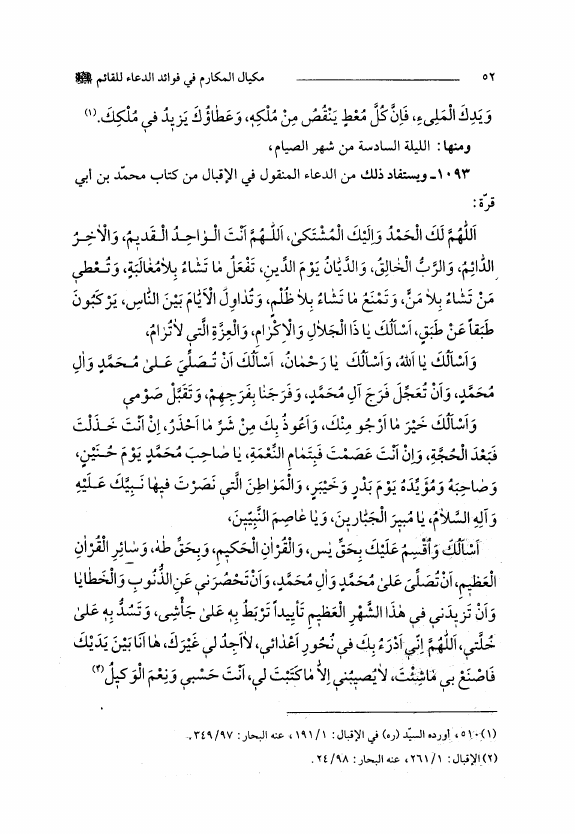 ٥٢ مكيال المكارم في فوائد الدعاء للقائم
وَيَدِكَ الْمَلِىءِ، فَإِنَّ كُلَّ مُعْطٍ يَنْقُصُ مِنْ مُلْكِهِ، وَعَطٰاؤُكَ يَزيدُ في مُلْكِكَ.(١)
ومنها: الليلة السادسة من شهر الصيام،
١٠٩٣ـ ويستفاد ذلك من الدعاء المنقول في الإقبال من كتاب محمّد بن أبي
قرّة:
اَللّٰهُمَّ لَكَ الْحَمْدُ وَاِلَيْكَ الْمُشْتَكىٰ، اَللّٰهُمَّ اَنْتَ الْوٰاحِدُ الْقَديمُ، وَالْاٰخِرُ
الدّٰائِمُ، وَالرَّبُّ الْخٰالِقُ، وَالدَّيّٰانُ يَوْمَ الدّينِ، تَفْعَلُ مٰا تَشٰاءُ بِلاٰمُغٰالَبَةٍ، وَتُعْطي
مَنْ تَشٰاءُ بِلاٰ مَنٍّ، وَتَمْنَعُ مٰا تَشٰاءُ بِلاٰ ظُلْمٍ، وَتُدٰاوِلُ الْاَيّٰامَ بَيْنَ النّٰاسِ، يَرْكَبُونَ
طَبَقاً عَنْ طَبَقٍ، اَسْاَلُكَ يٰا ذَا الْجَلاٰلِ وَالْاِكْرٰامِ، وَالْعِزَّةِ الَّتي لاٰتُرٰامُ،
وَاَسْاَلُكَ يٰا اَللهُ، وَاَسْاَلُكَ يٰا رَحْمٰانُ، اَسْاَلُكَ اَنْ تُصَلِّيَ عَلىٰ مُحَمَّدٍ وَاٰلِ
مُحَمَّدٍ، وَاَنْ تُعَجِّلَ فَرَجَ آلِ مُحَمَّدٍ، وَفَرَجَنٰا بِفَرَجِهِمْ، وَتَقَبَّلْ صَوْمي
وَاَسْاَلُكَ خَيْرَ مٰا اَرْجُو مِنْكَ، وَاَعُوذُ بِكَ مِنْ شَرِّ مٰا اَحْذَرُ، اِنْ اَنْتَ خَذَلْتَ
فَبَعْدَ الْحُجَّةِ، وَاِنْ اَنْتَ عَصَمْتَ فَبِتَمٰامِ النِّعْمَةِ، يٰا صٰاحِبَ مُحَمَّدٍ يَوْمَ حُنَيْنٍ،
وَصٰاحِبَهُ وَمُؤَيِّدَهُ يَوْمَ بَدْرٍ وَخَيْبَرٍ، وَالْمَوٰاطِنَ الَّتي نَصَرْتَ فيهٰا نَبِيَّكَ عَلَيْهِ
وَآلِهِ السَّلاٰمُ، يٰا مُبيرَ الْجَبّٰارينَ، وَيٰا عٰاصِمَ النَّبِيّينَ،
اَسْاَلُكَ وَاُقْسِمُ عَلَيْكَ بِحَقِّ يٰس، وَالْقُرْاٰنِ الْحَكيمِ، وَبِحَقِّ طٰهٰ، وَسٰائِرِ الْقُرْاٰنِ
الْعَظيمِ، اَنْ تُصَلِّيَ عَلىٰ مُحَمَّدٍ وَاٰلِ مُحَمَّدٍ، وَاَنْ تَحْصُرَني عَنِ الذُّنُوبِ وَالْخَطٰايٰا
وَاَنْ تَزيدَني في هٰذَا الشَّهْرِ الْعَظيمِ تَأْييداً تَرْبِطُ بِهِ عَلىٰ جَأْشي، وَتَسُدُّ بِهِ عَلىٰ
خُلَّتي، اَللّٰهُمَّ اِنّي اَدْرَءُ بِكَ في نُحُورِ اَعْدٰائي، لاٰاَجِدُ لي غَيْرَكَ، هٰا اَنَا بَيْنَ يَدَيْكَ
فَاصْنَعْ بي مٰا شِئْتَ، لاٰيُصيبُني اِلاّٰ مٰا كَتَبْتَ لي، اَنْتَ حَسْبي وَنِعْمَ الْوَكيلُ(٢)
(١) ٥١٠، أورده السيّد (ره) في الإقبال: ١٩١/١، عنه البحار: ٣٤٩/٩٧.
(٢) الإقبال: ٢٦١/١، عنه البحار: ٢٤/٩٨.